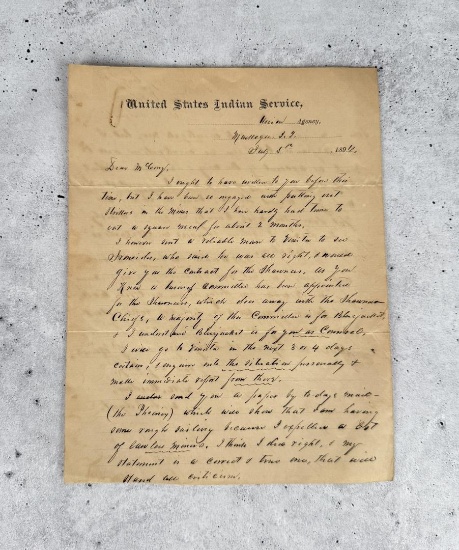 United States Indian Service,
Union Agency,
Muskogee I.T.
July 5th 1894.
Dear McCoy.
I ought to have written to you before this
time, but I have been so engaged with putting out
strikers in the Mines that I have hardly had time to
eat a square meal for about 2 months,
I however sent a reliable man to Vinita to see
who said he was all right, &
give you the contract for the Shawnees, as you
Know a business Committee has been appointed
for the Shawnees, which does away with the Shawnee
Chiefs, & majority of this Committee is for Bluejacket,
& I understand Bluejacket is for you as Counsel.
I will go to Vinita in the next 3 or 4 days
certain, & enquire into the situation personally &
make immediate report from there.
I send you a paper by to days mail—
(the Phoenix) which will show that I am having
some rough sailing because I expelled a lot
of lawless miners, I think I did right, & my
statement is a correct & true one, that will
stand all criticism.